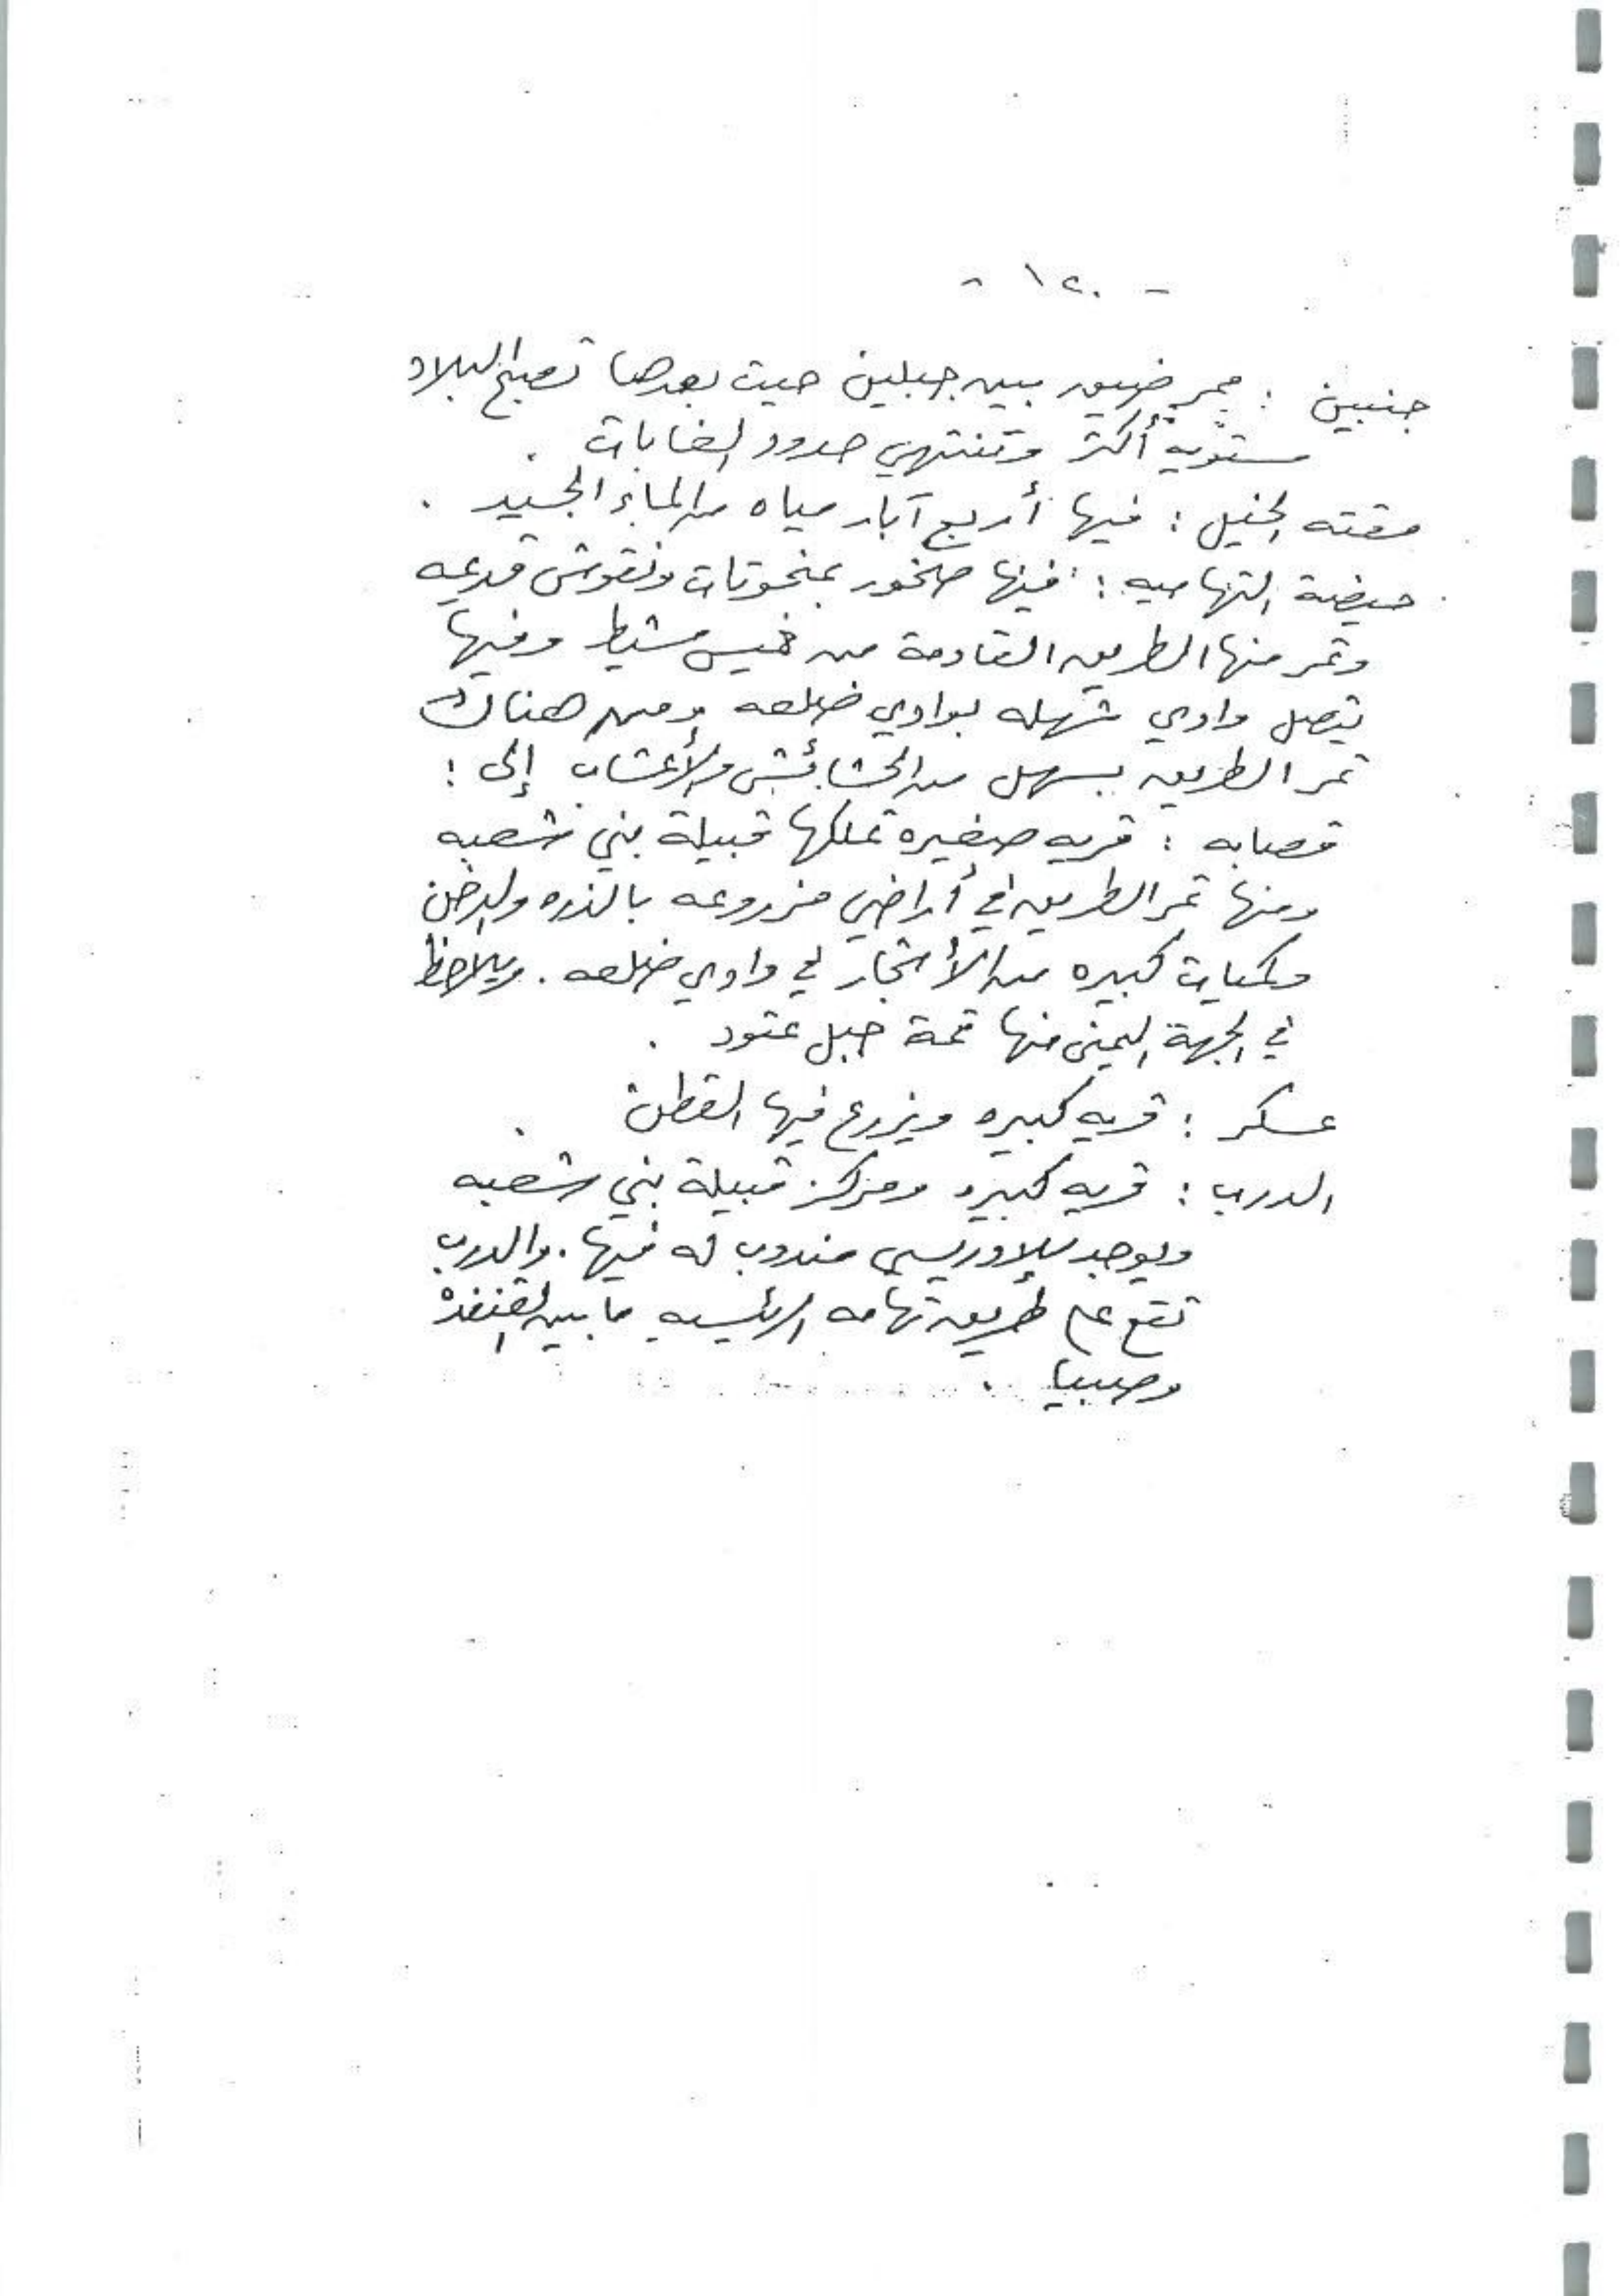 - ١٢٠ -
جنبين : ممر ضيق بين جبلين حيث بعدها تصبح البلاد
مستويه أكثر وتنتهي حدود الغابات .
مقته الخيل : فيها أربع آبار مياه من الماء الجيد .
حيضة التهاميه : فيها صخور بمنحوتات ونقوش قديمه
وتمر منها الطريق القادمة من خميس مشيط وفيها
يتصل وادي شهله بوادي ضلعه ومن هناك
تمر الطريق بسهل من الحشائش والأعشاب إلى :
قصابه : قريه صغيره تملكها قبيلة بني شعبه
ومنها تمر الطريق في أراضي مزروعه بالذره والدخن
وكميات كبيره من الأشجار في وادي ضلعه . ويلاحظ
في الجهة اليمنى منها قمة جبل عتود .
عسكر : قريه كبيره ويزرع فيها القطن .
الدرب : قريه كبيره ومركز قبيلة بني شعبه
ويوجد للإدريسي مندوب له فيها . والدرب
تقع على طريق تهامه الرئيسيه ما بين القنفذة
وصبيا .